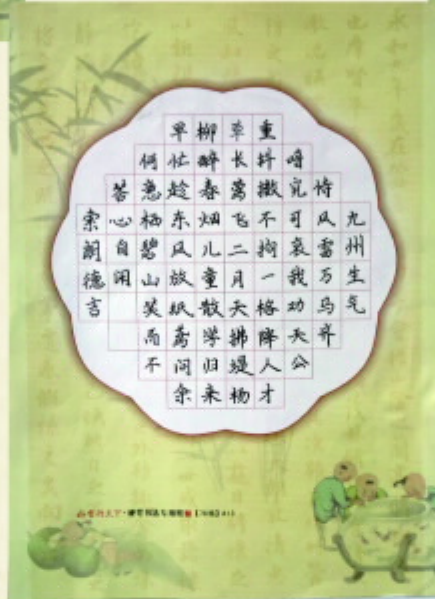 九州生气
恃风雷万马齐
喑究可哀我劝天公
重抖擞不拘一格降人才
草长莺飞二月天拂堤杨
柳醉春烟儿童散学归来
早忙趁东风放纸鸢问余
何意栖碧山笑而不
答心自闲
索嗣德言
行天下·硬笔书法专用纸